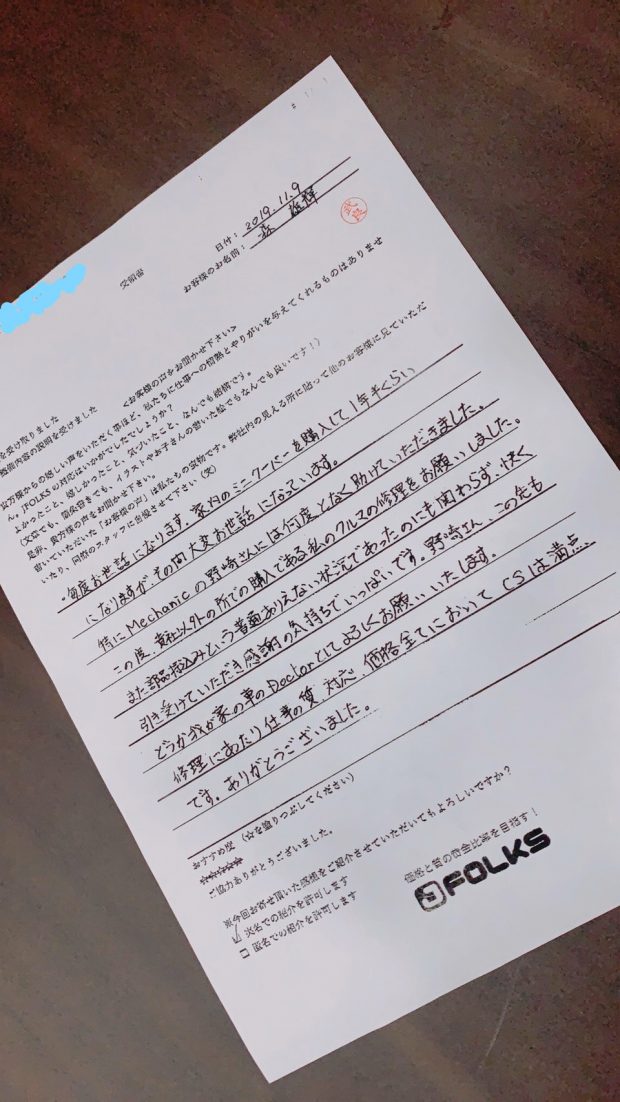 受領書
日付：2019.11.9
お客様のお名前：
<お客様の声をお聞かせ下さい>
を受け取りました
整備内容の説明を受けました
貴方様からの嬉しい声をいただく事ほど、私たちに仕事への情熱とやりがいを与えてくれるものはありませ
ん。FOLKSの対応はいかがでしたでしょうか？
よかったこと、嬉しかったこと、気づいたこと、なんでも結構です。
(文章でも、箇条書きでも、イラストやお子さんの書いた絵でもなんでも良いです！)
是非、貴方様の声をお聞かせ下さい。
書いていただいた「お客様の声」は私たちの宝物です。弊社内の見える所に貼って他のお客様に見ていただ
いたり、同僚のスタッフに自慢させて下さい（笑）
毎度お世話になります。家内のミニクーパーを購入して1年半くらい
になりますがその間大変お世話になっています。
特にMechanicの野崎さんには何度となく助けていただきました。
この度、貴社以外の所での購入である私のクルマの修理をお願いしました。
また部品持込みという普通ありえない状況であったのにも関わらず、快く
引き受けていただき感謝の気持ちでいっぱいです。野崎さん、この先も
どうか我が家の車のDoctorとしてよろしくお願いいたします。
修理にあたり仕事の質、対応、価格全てにおいてCSは満点
です。ありがとうございました。
おすすめ度（☆を塗りつぶしてください）
★★★★★
ご協力ありがとうございました。
※今回お寄せ頂いた感想をご紹介させていただいてもよろしいですか？
実名での紹介を許可します
匿名での紹介を許可します
価格と質の黄金比率を目指す！
FOLKS